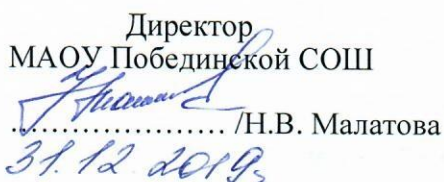 Директор
МАОУ Побединской СОШ
...................... /Н.В. Малатова
31.12.2019г